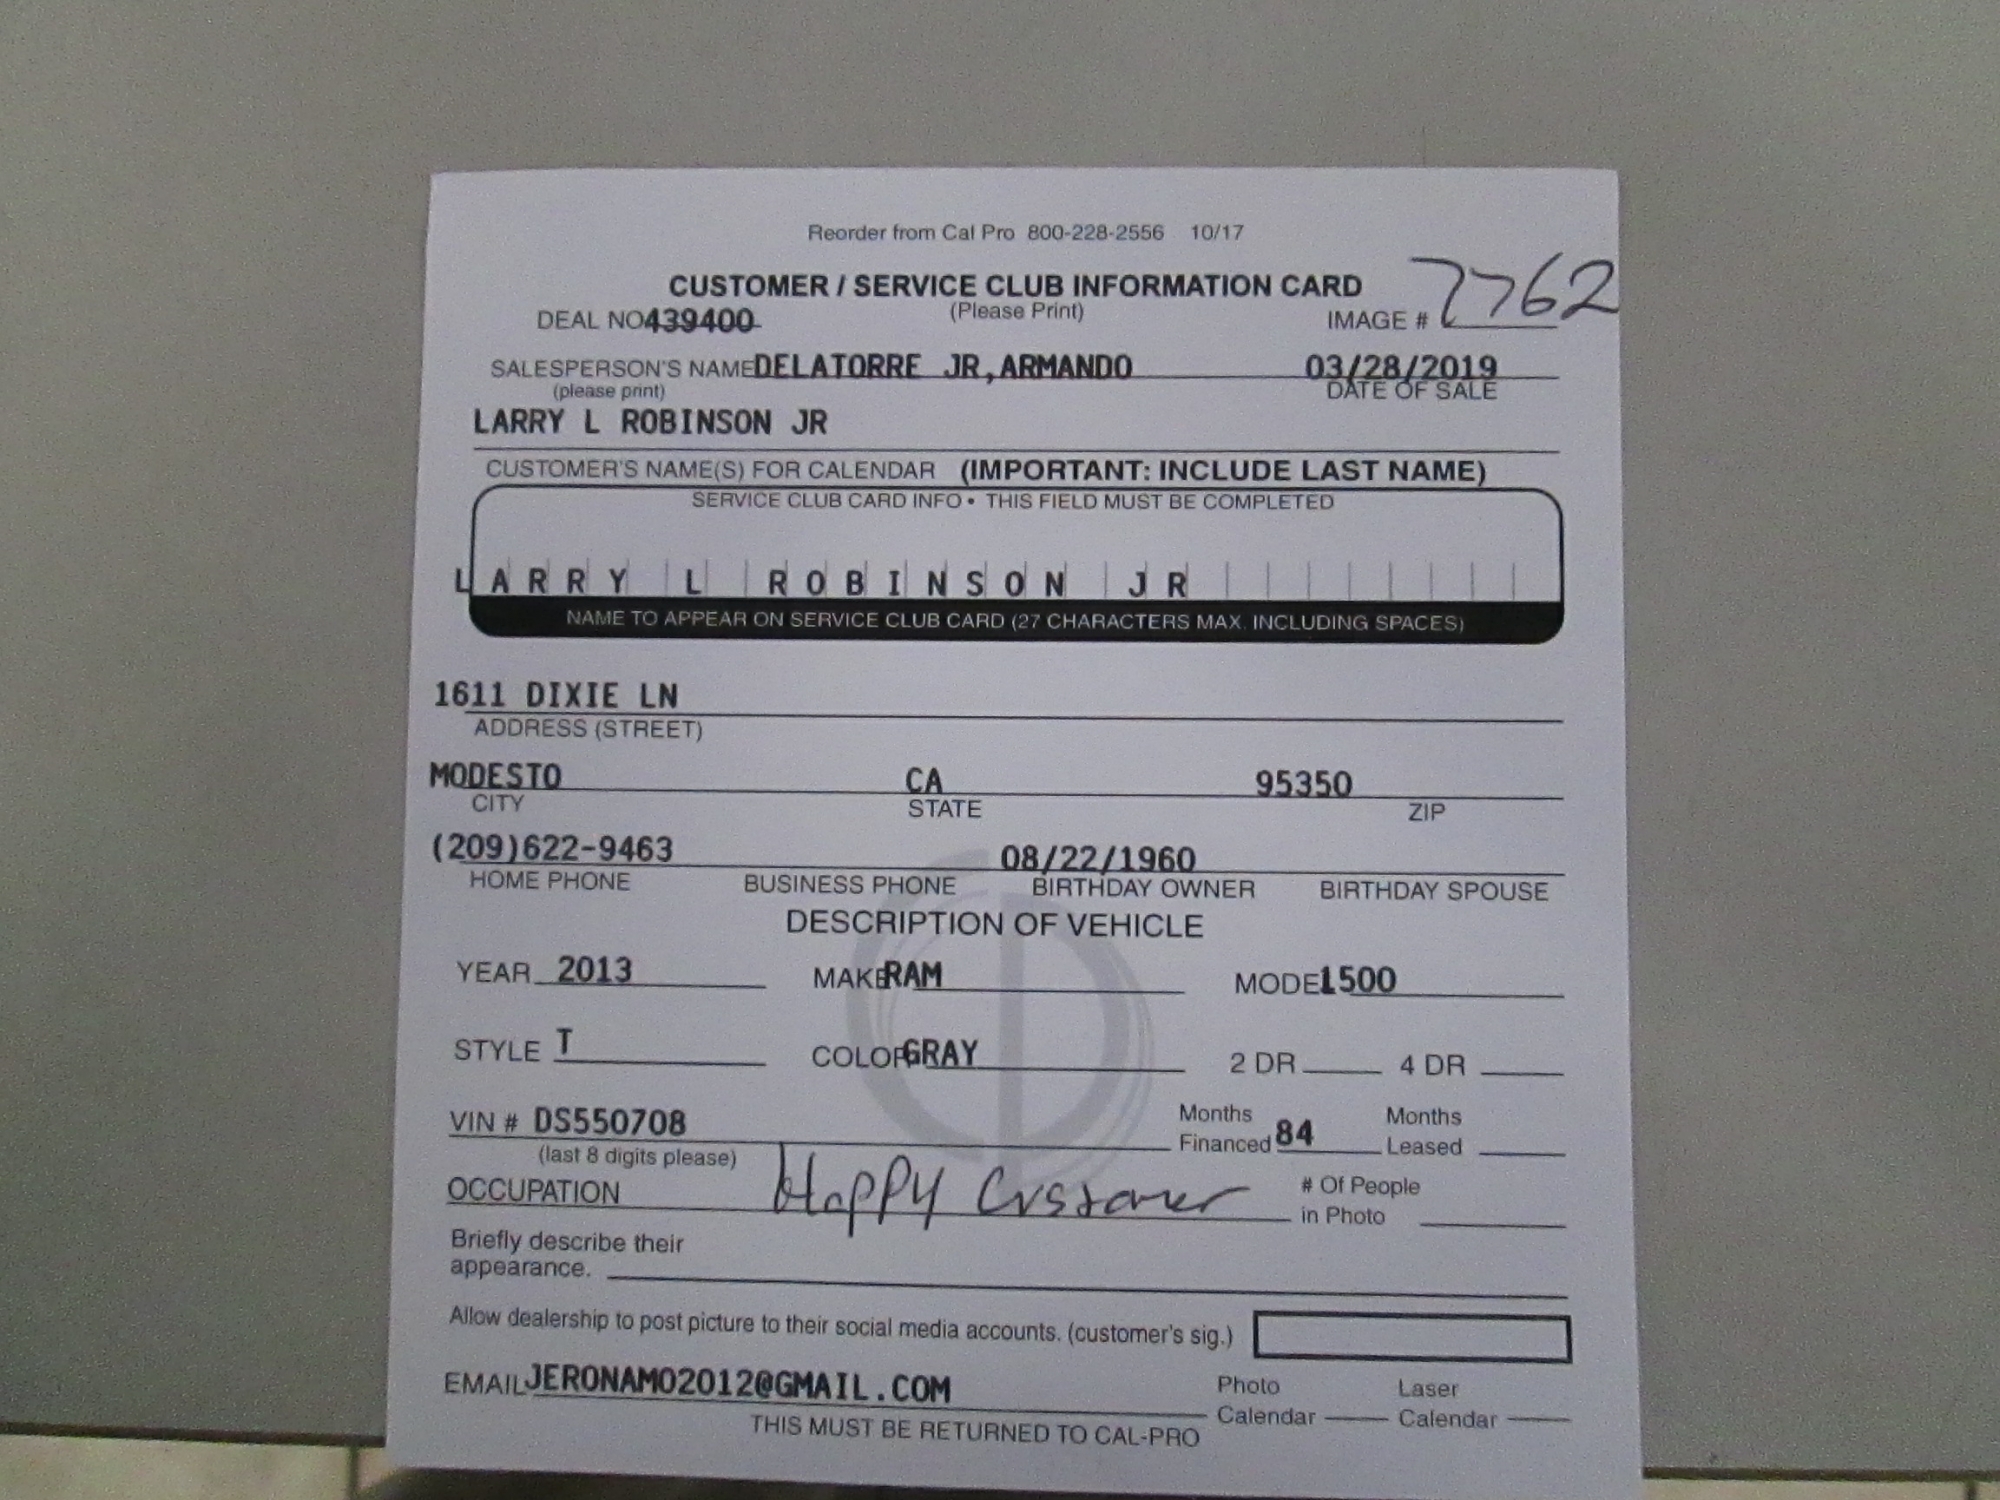 Reorder from Cal Pro 800-228-2556 10/17
CUSTOMER / SERVICE CLUB INFORMATION CARD
(Please Print)
DEAL NO 439400 IMAGE # 7762
SALESPERSON'S NAME DELATORRE JR,ARMANDO 03/28/2019
(please print) DATE OF SALE
LARRY L ROBINSON JR
CUSTOMER'S NAME(S) FOR CALENDAR (IMPORTANT: INCLUDE LAST NAME)
SERVICE CLUB CARD INFO • THIS FIELD MUST BE COMPLETED
LARRY L ROBINSON JR
NAME TO APPEAR ON SERVICE CLUB CARD (27 CHARACTERS MAX. INCLUDING SPACES)
1611 DIXIE LN
ADDRESS (STREET)
MODESTO CA 95350
CITY STATE ZIP
(209)622-9463 08/22/1960
HOME PHONE BUSINESS PHONE BIRTHDAY OWNER BIRTHDAY SPOUSE
DESCRIPTION OF VEHICLE
YEAR 2013 MAKE RAM MODEL 1500
STYLE T COLOR GRAY 2 DR 4 DR
VIN # DS550708 Months Financed 84 Months Leased
(last 8 digits please)
OCCUPATION Happy Customer # Of People in Photo
Briefly describe their
appearance.
Allow dealership to post picture to their social media accounts. (customer's sig.)
EMAIL JERONAMO2012@GMAIL.COM Photo Calendar Laser Calendar
THIS MUST BE RETURNED TO CAL-PRO